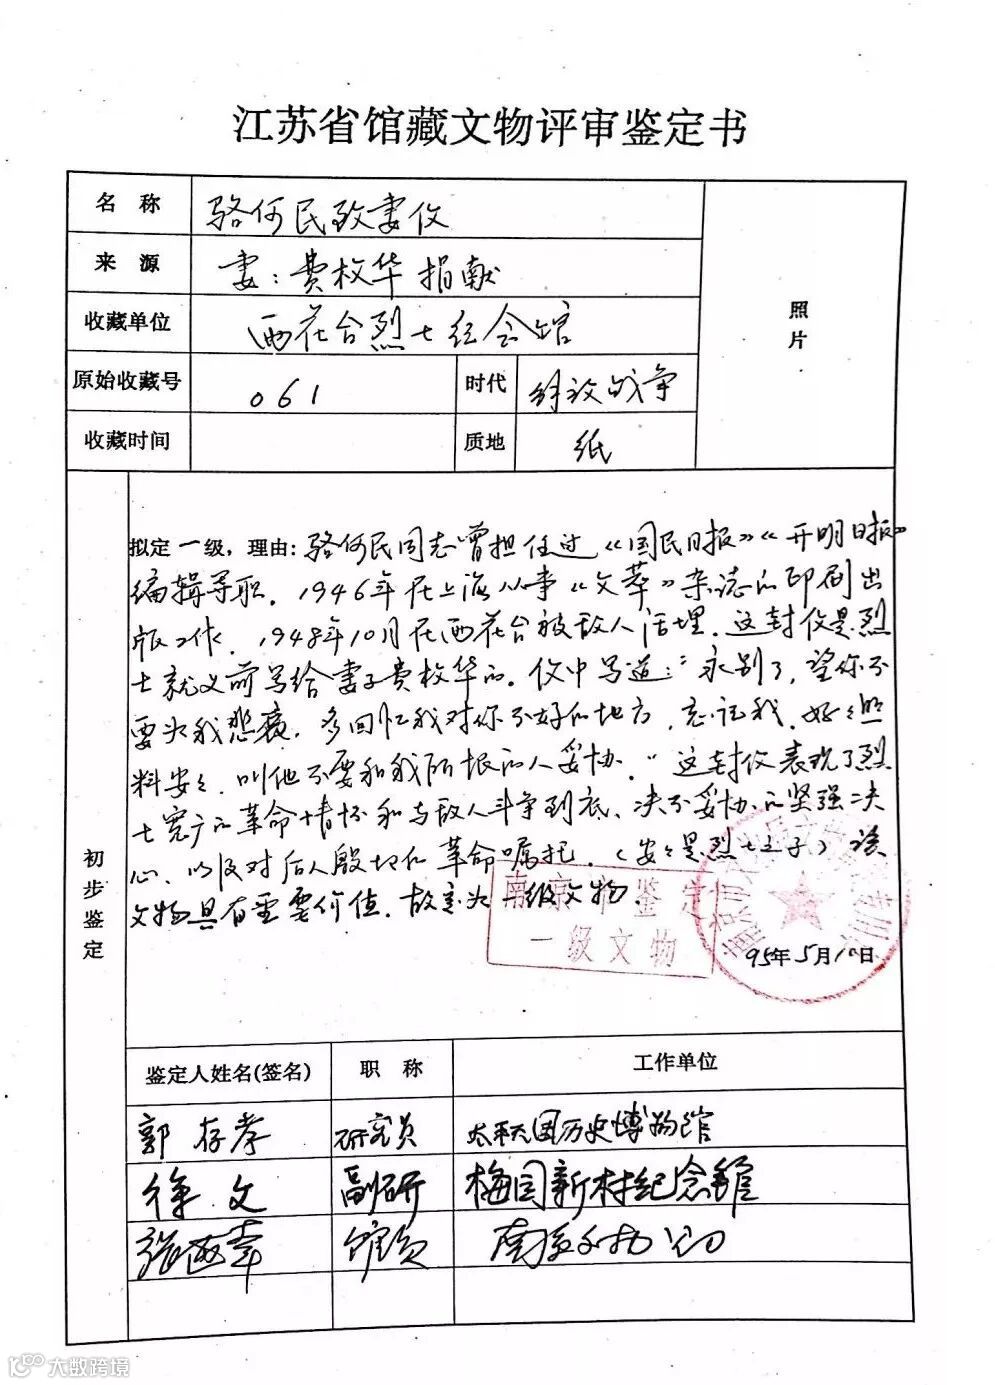 江苏省馆藏文物评审鉴定书
名 称 骆何民致妻信
来 源 妻：费枚华捐献
照片
收藏单位 雨花台烈士纪念馆
原始收藏号 061 时代 解放战争
收藏时间 质地 纸
初步鉴定
拟定一级，理由：骆何民同志曾担任过《国民日报》《开明日报》
编辑等职．1946年在上海从事《文萃》杂志的印刷出
版工作．1948年10月在雨花台被敌人活埋．这封信是烈
士就义前写给妻子费枚华的．信中写道：“永别了，望你不
要为我悲哀，多回忆我对你不好的地方，忘记我，好好照
料安安，叫他不要和我所恨的人妥协．”这封信表现了烈
士宽广的革命情怀和与敌人斗争到底、决不妥协的坚强决
心，以及对后人殷切的革命嘱托．（安安是烈士之子）该
文物具有重要价值，故定为一级文物．
南京市鉴定
一级文物
95年5月10日
鉴定人姓名(签名) 职 称 工作单位
郭存孝 研究员 太平天国历史博物馆
徐文 副研 梅园新村纪念馆
馆员
大数跨境